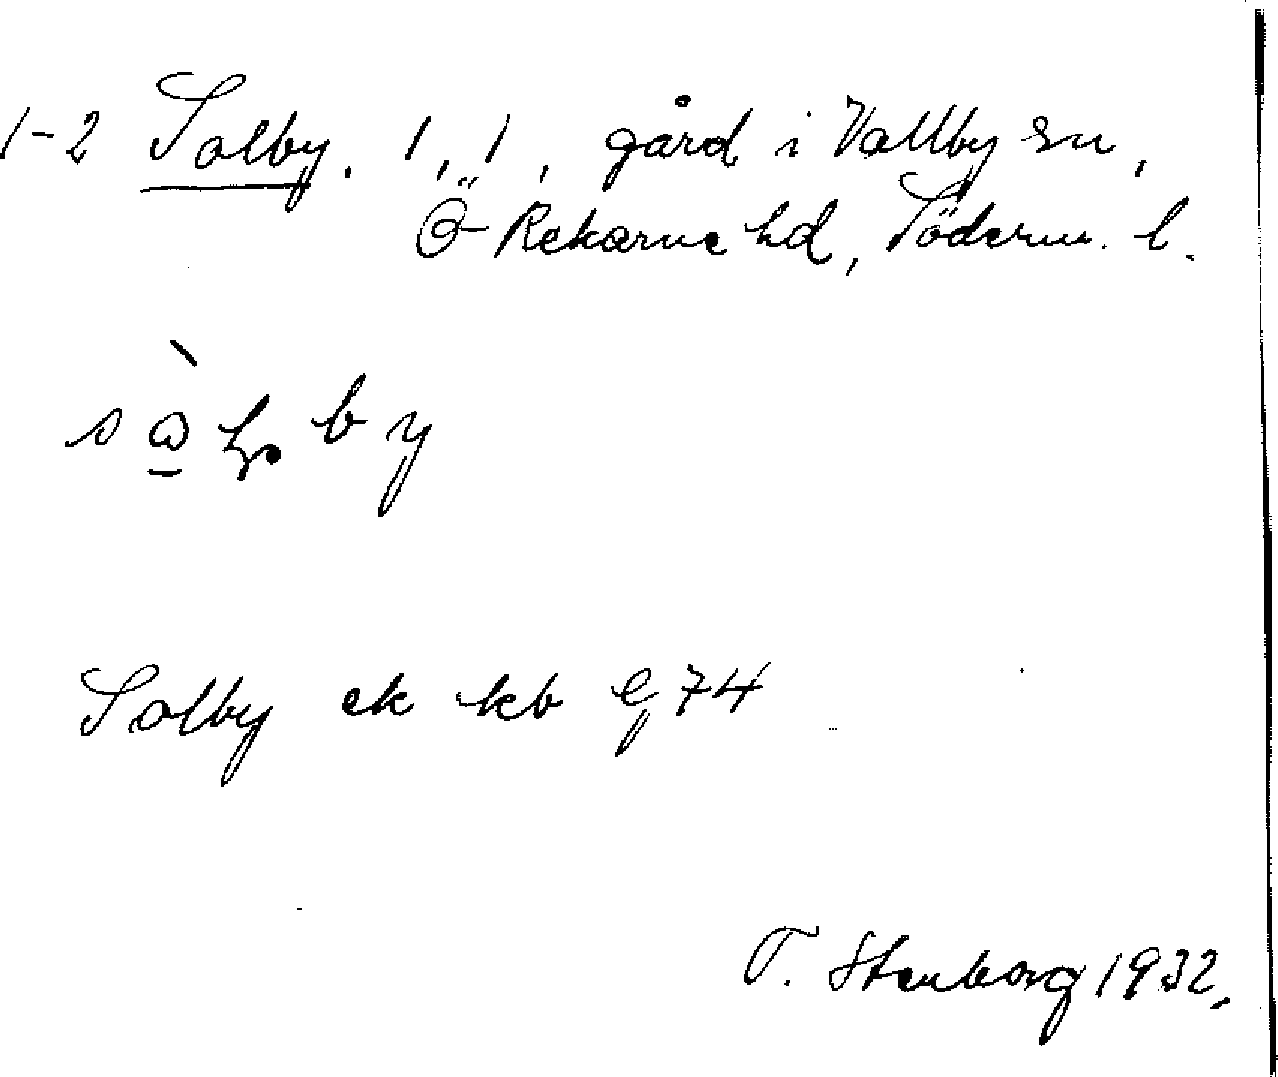 1-2 Solby. 1, 1, gård i Vallby sn,
Ö-Rekarne hd, Söderm. l.
Solby ek kb C 74
T. Stenborg 1932.